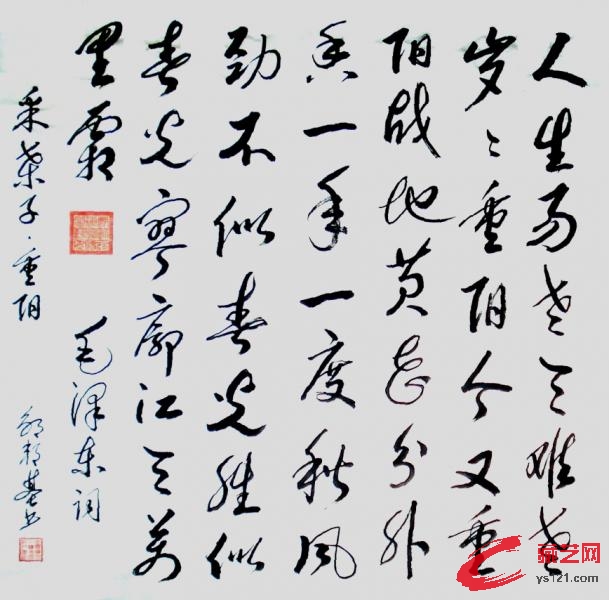 人生易老天难老
岁々重阳今又重
阳战地黄花分外
香一年一度秋风
劲不似春光胜似
春光寥廓江天万
里霜
毛泽东词
采桑子·重阳
艺网
ys121.com